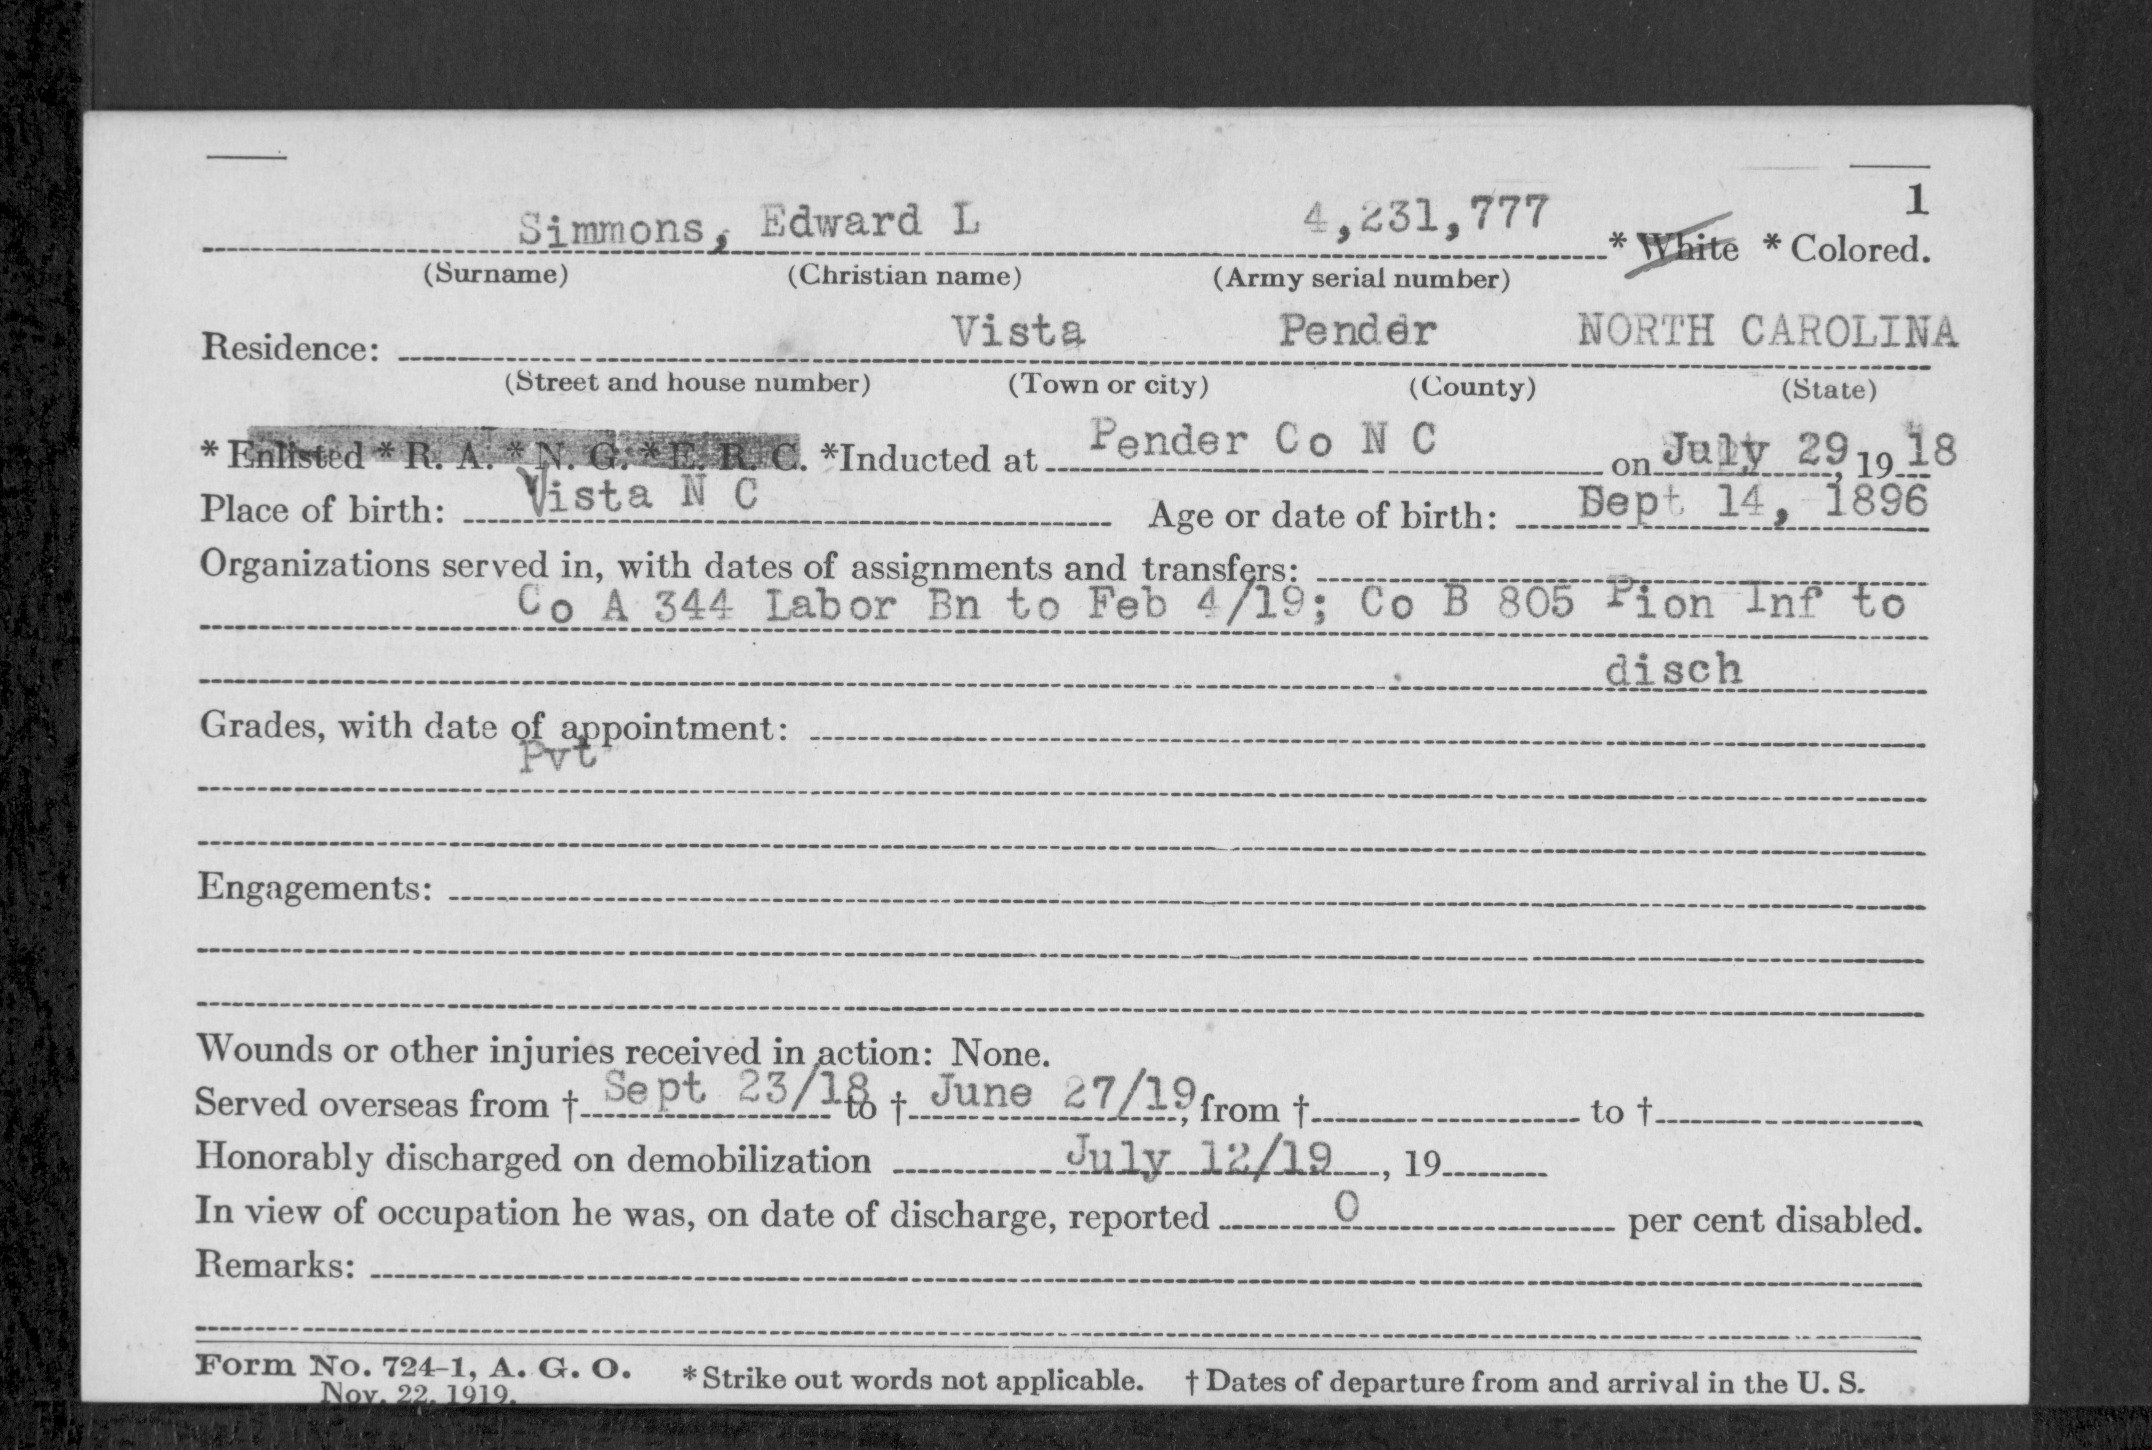 1
Simmons, Edward L 4,231,777 * White * Colored.
(Surname) (Christian name) (Army serial number)
Residence: Vista Pender NORTH CAROLINA
(Street and house number) (Town or city) (County) (State)
* Enlisted * R. A. * N. G. * E. R. C. *Inducted at Pender Co N C on July 29, 19 18
Place of birth: Vista N C Age or date of birth: Sept 14, 1896
Organizations served in, with dates of assignments and transfers:
Co A 344 Labor Bn to Feb 4/19; Co B 805 Pion Inf to
disch
Grades, with date of appointment:
Pvt
Engagements:
Wounds or other injuries received in action: None.
Served overseas from † Sept 23/18 to † June 27/19, from † to †
Honorably discharged on demobilization July 12/19, 19
In view of occupation he was, on date of discharge, reported 0 per cent disabled.
Remarks:
Form No. 724-1, A. G. O. * Strike out words not applicable. † Dates of departure from and arrival in the U. S.
Nov. 22, 1919.